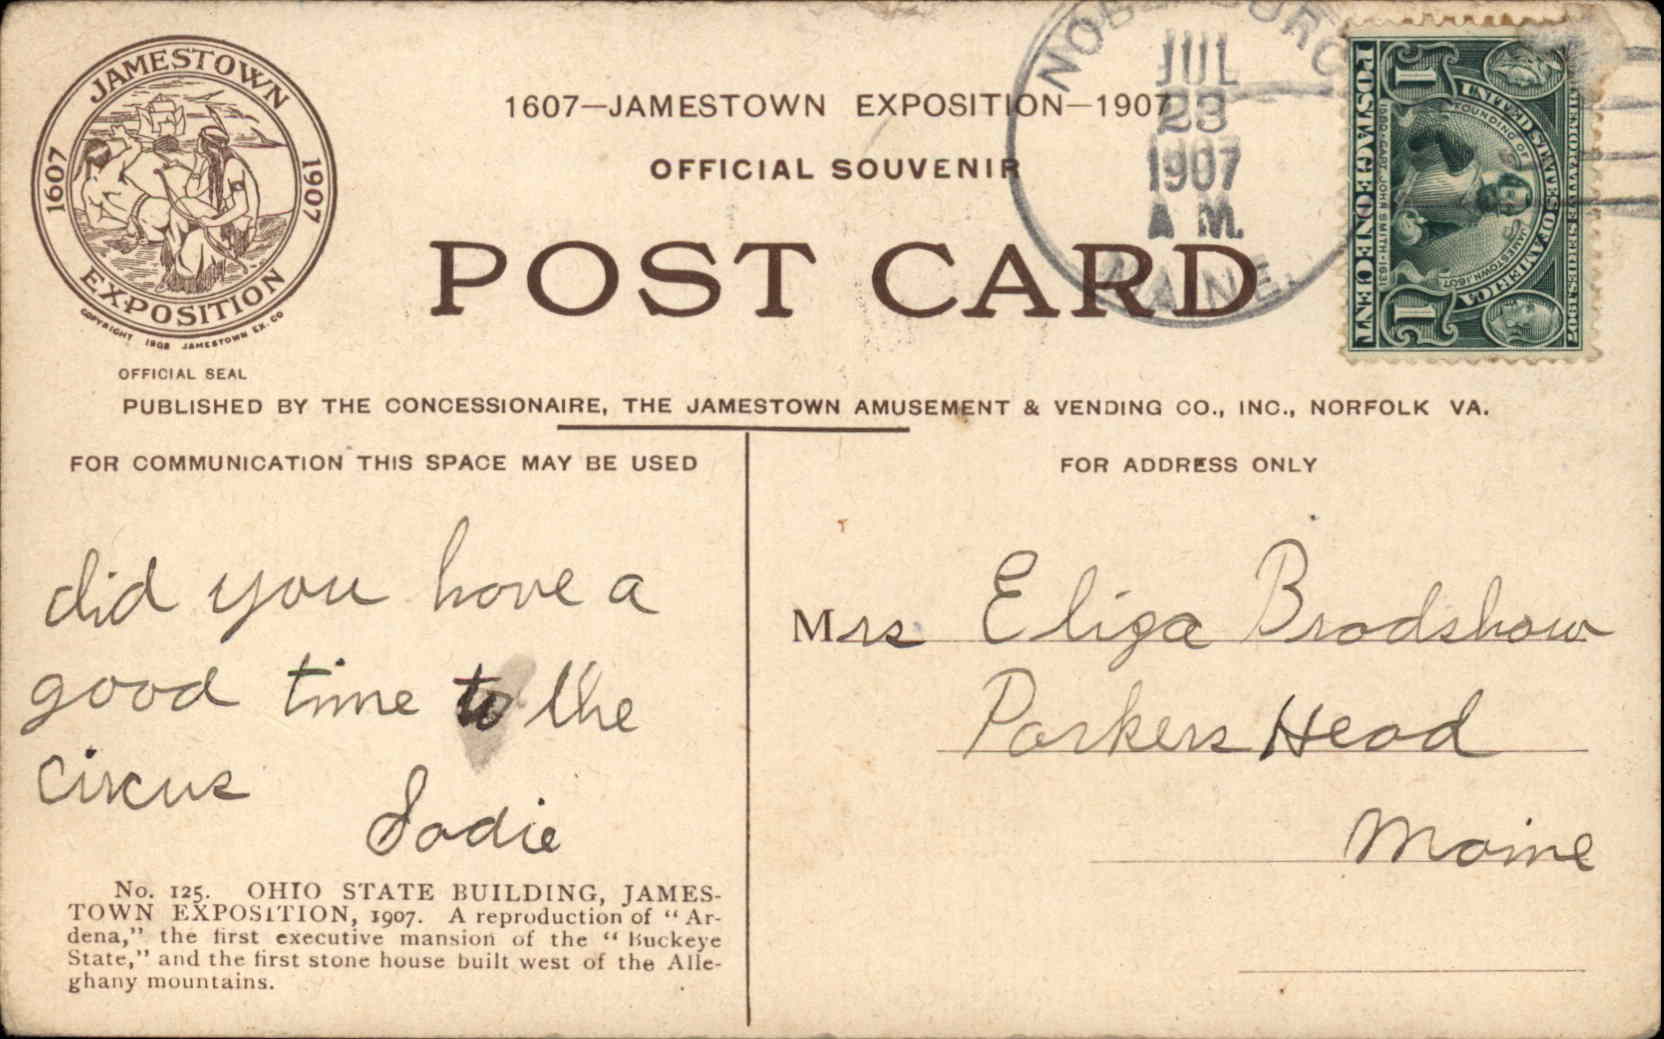 JAMESTOWN
1607 1907
EXPOSITION
COPYRIGHT 1908 JAMESTOWN EX. CO
OFFICIAL SEAL
1607—JAMESTOWN EXPOSITION—1907
OFFICIAL SOUVENIR
POST CARD
JUL
23
1907
A M.
MAINE.
COMMEMORATIVE SERIES, 1907
UNITED STATES OF AMERICA
FOUNDING OF JAMESTOWN, 1607
1580·CAPT. JOHN SMITH·1631
1 1
POSTAGE ONE CENT
PUBLISHED BY THE CONCESSIONAIRE, THE JAMESTOWN AMUSEMENT & VENDING CO., INC., NORFOLK VA.
FOR COMMUNICATION THIS SPACE MAY BE USED
did you have a
good time to the
circus
Sadie
No. 125. OHIO STATE BUILDING, JAMES-
TOWN EXPOSITION, 1907. A reproduction of "Ar-
dena," the first executive mansion of the "Buckeye
State," and the first stone house built west of the Alle-
ghany mountains.
FOR ADDRESS ONLY
Mrs Eliza Bradshaw
Parkers Head
Maine